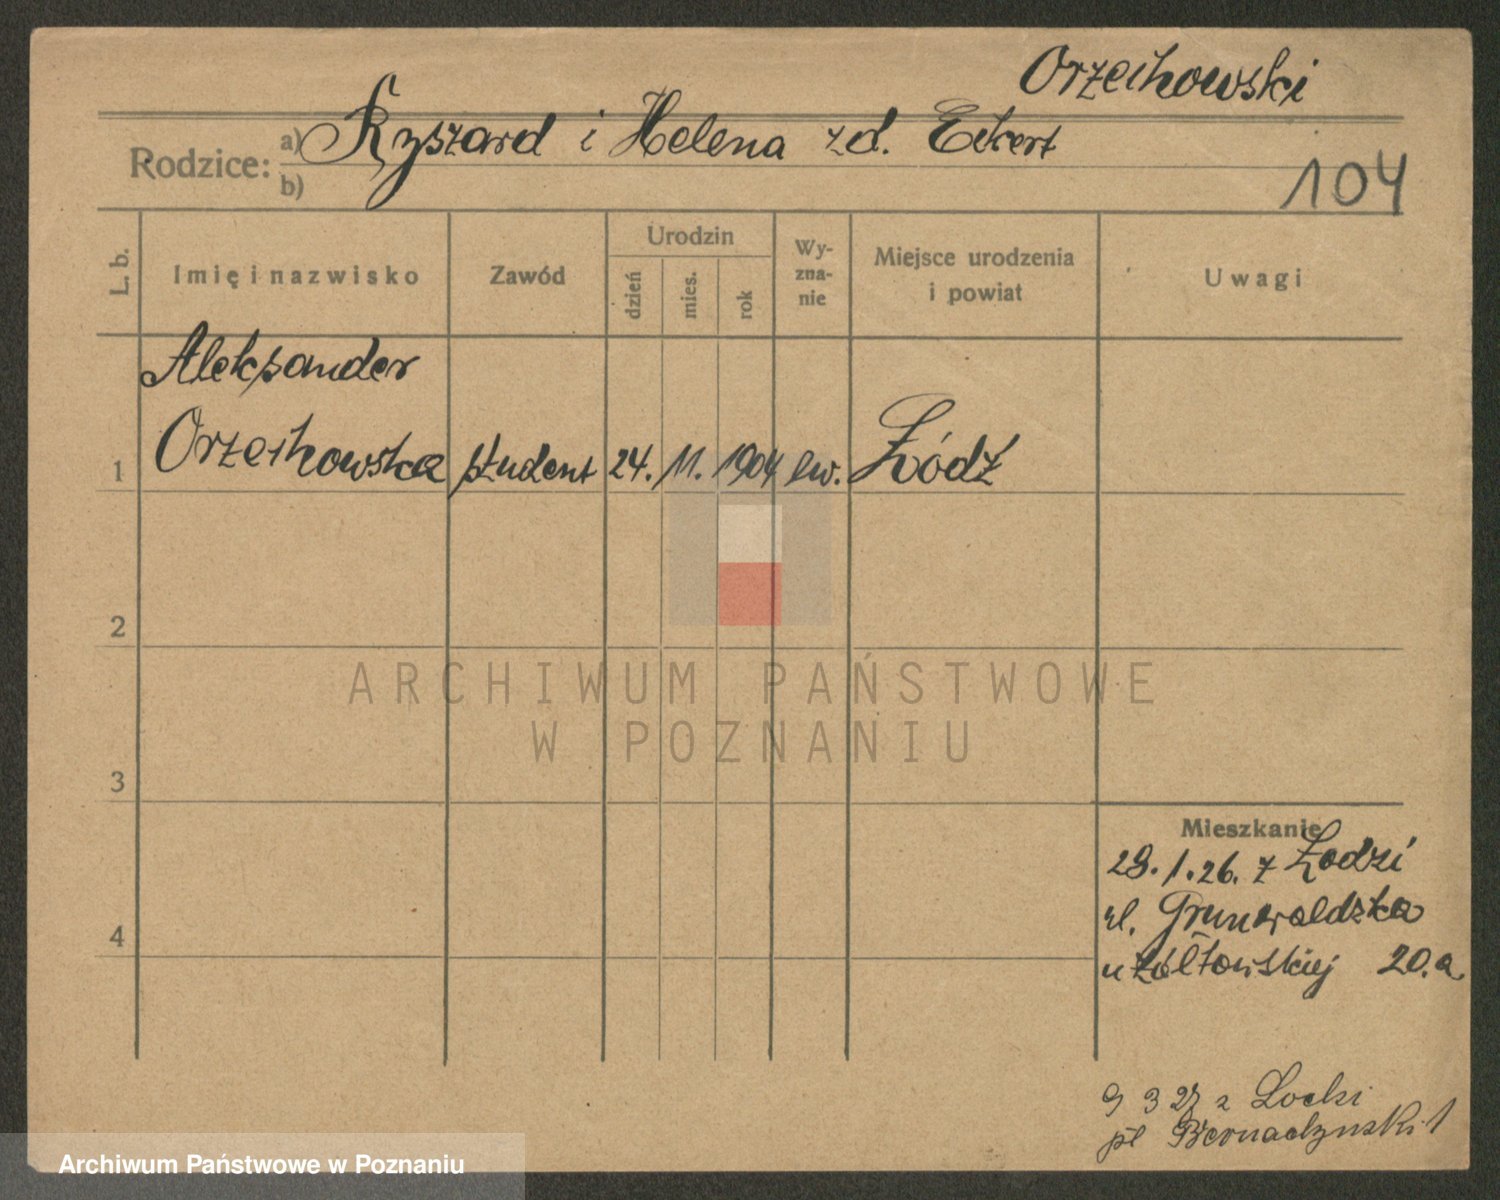 Orzechowski
Rodzice: a) Ryszard i Helena zd. Eckert
b)
104
L. b.
Imię i nazwisko
Zawód
Urodzin
dzień
mies.
rok
Wy-
zna-
nie
Miejsce urodzenia
i powiat
Uwagi
Aleksander
1 Orzechowska student 24. 11. 1904 ew. Łódź
2
ARCHIWUM PAŃSTWOWE
W POZNANIU
3
Mieszkanie
28. 1. 26. z Łodzi
ul. Grunwaldzka
4
u Żółtowskiej 20. a
9 3 27 z
pl Bernadynski 1
Archiwum Państwowe w Poznaniu